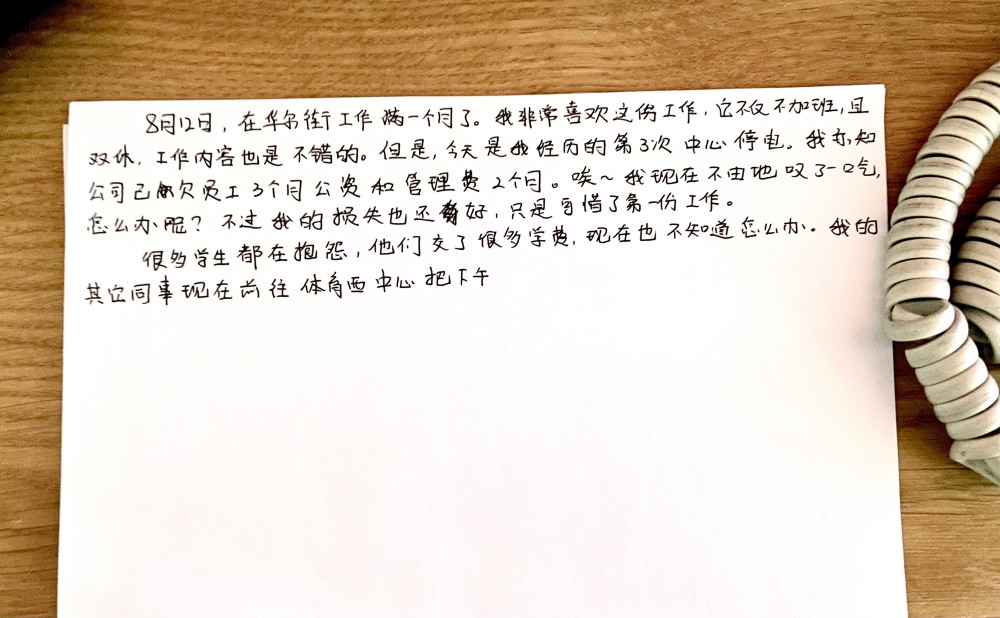 8月12日，在华尔街工作满一个月了。我非常喜欢这份工作，它不仅不加班，且
双休，工作内容也是不错的。但是，今天是我经历的第3次中心停电。我亦知
公司已欠员工3个月公资和管理费2个月。唉~我现在不由地叹了一口气，
怎么办呢？不过我的损失也还好，只是可惜了第一份工作。
很多学生都在抱怨，他们交了很多学费，现在也不知道怎么办。我的
其它同事现在前往体育西中心把下午